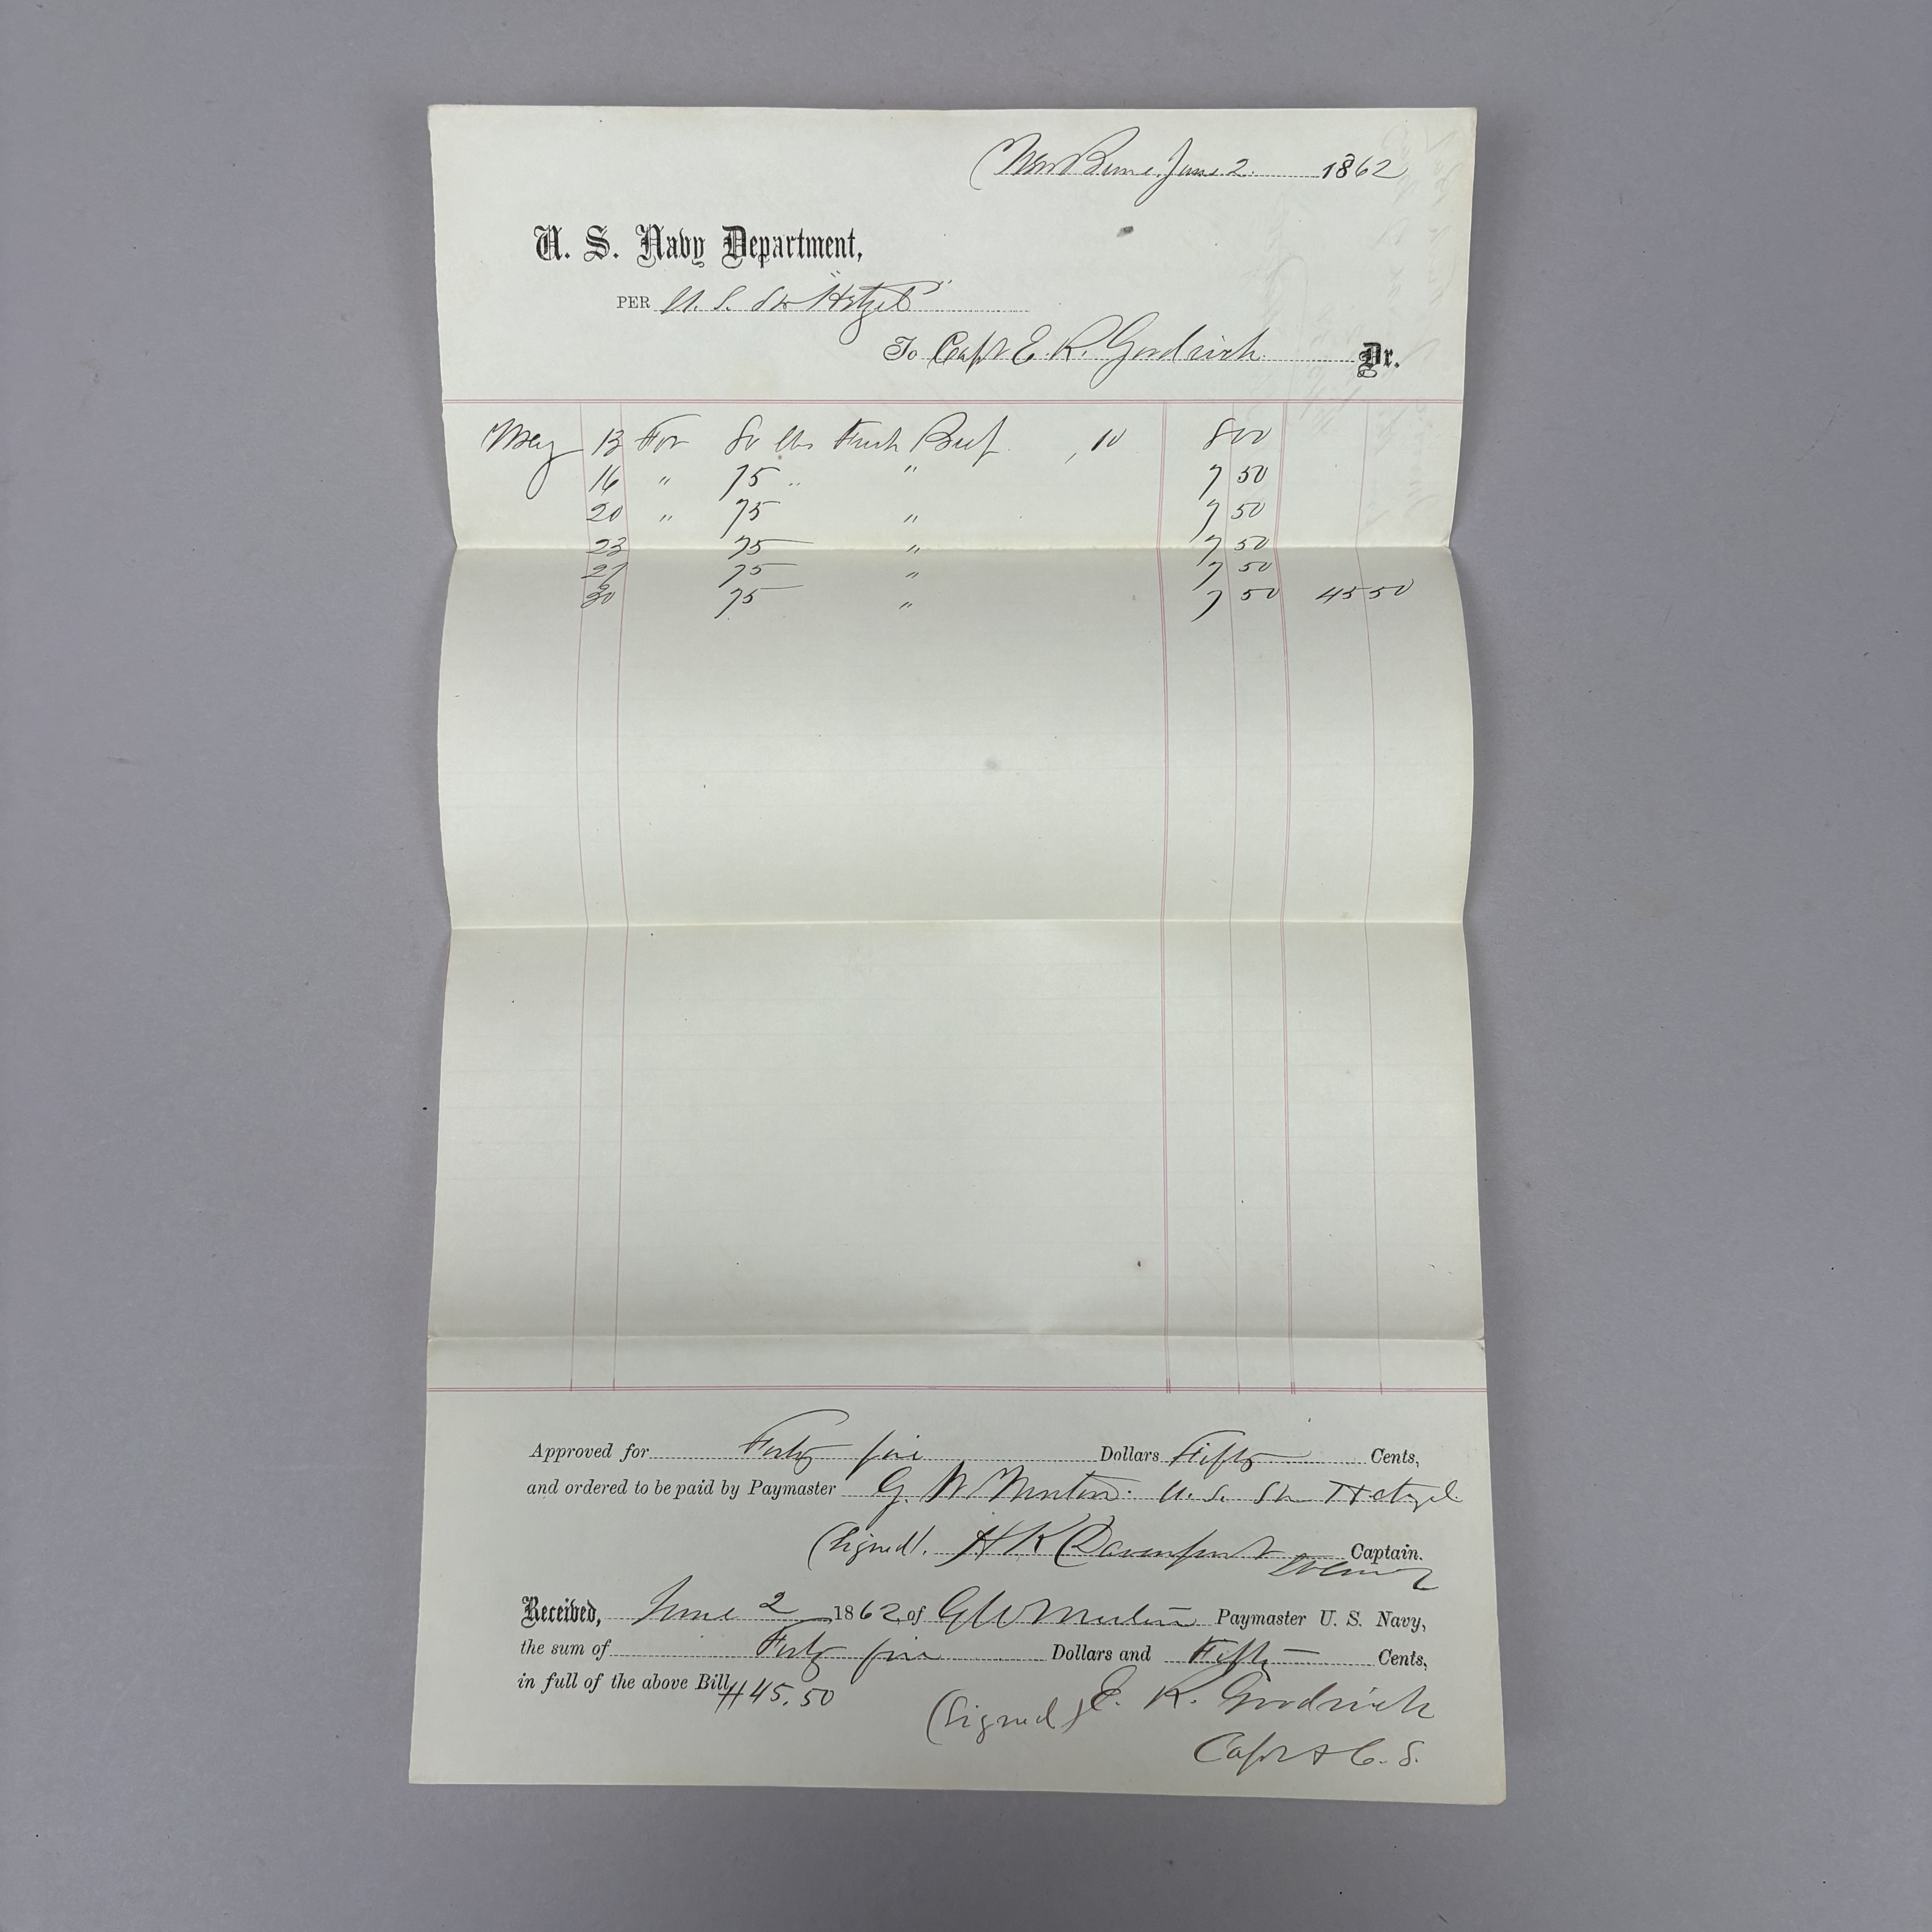 New Berne, June 2. 1862
U. S. Navy Department,
PER U. S. Str "Hetzel"
To Capt E. R. Goodrich Dr.
May 13 For 80 lbs Fresh Beef ,10 8 00
16 " 75 " " 7 50
20 " 75 " 7 50
23 75 " 7 50
27 75 " 7 50
30 75 " 7 50 45 50
Approved for Forty five Dollars Fifty Cents,
and ordered to be paid by Paymaster G. W. U. S. Str Hetzel
(Signed). H K Davenport Captain.
Received, June 2 1862, of G W Paymaster U. S. Navy,
the sum of Forty five Dollars and Fifty Cents,
in full of the above Bill, $45.50
(Signed) E. R. Goodrich
Capt & C. S.